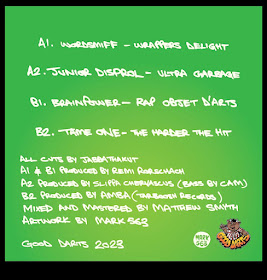 A1. WORDSMIFF - WRAPPERS DELIGHT
A2. JUNIOR DISPROL - ULTRA GARBAGE
B1. BRAINPOWER - RAP OBJET D'ARTS
B2. TAME ONE - THE HARDER THE HIT
ALL CUTS BY JABBATHAKUT
A1 & B1 PRODUCED BY REMI RORSCHACH
A2 PRODUCED BY SLIPPA CHERVASCUS (BASS BY CAM)
B2 PRODUCED BY AMBA (TARBOOSH RECORDS)
MIXED AND MASTERED BY MATTHEW SMYTH
ARTWORK BY MARK 563
GOOD DARTS 2023
MARK
563